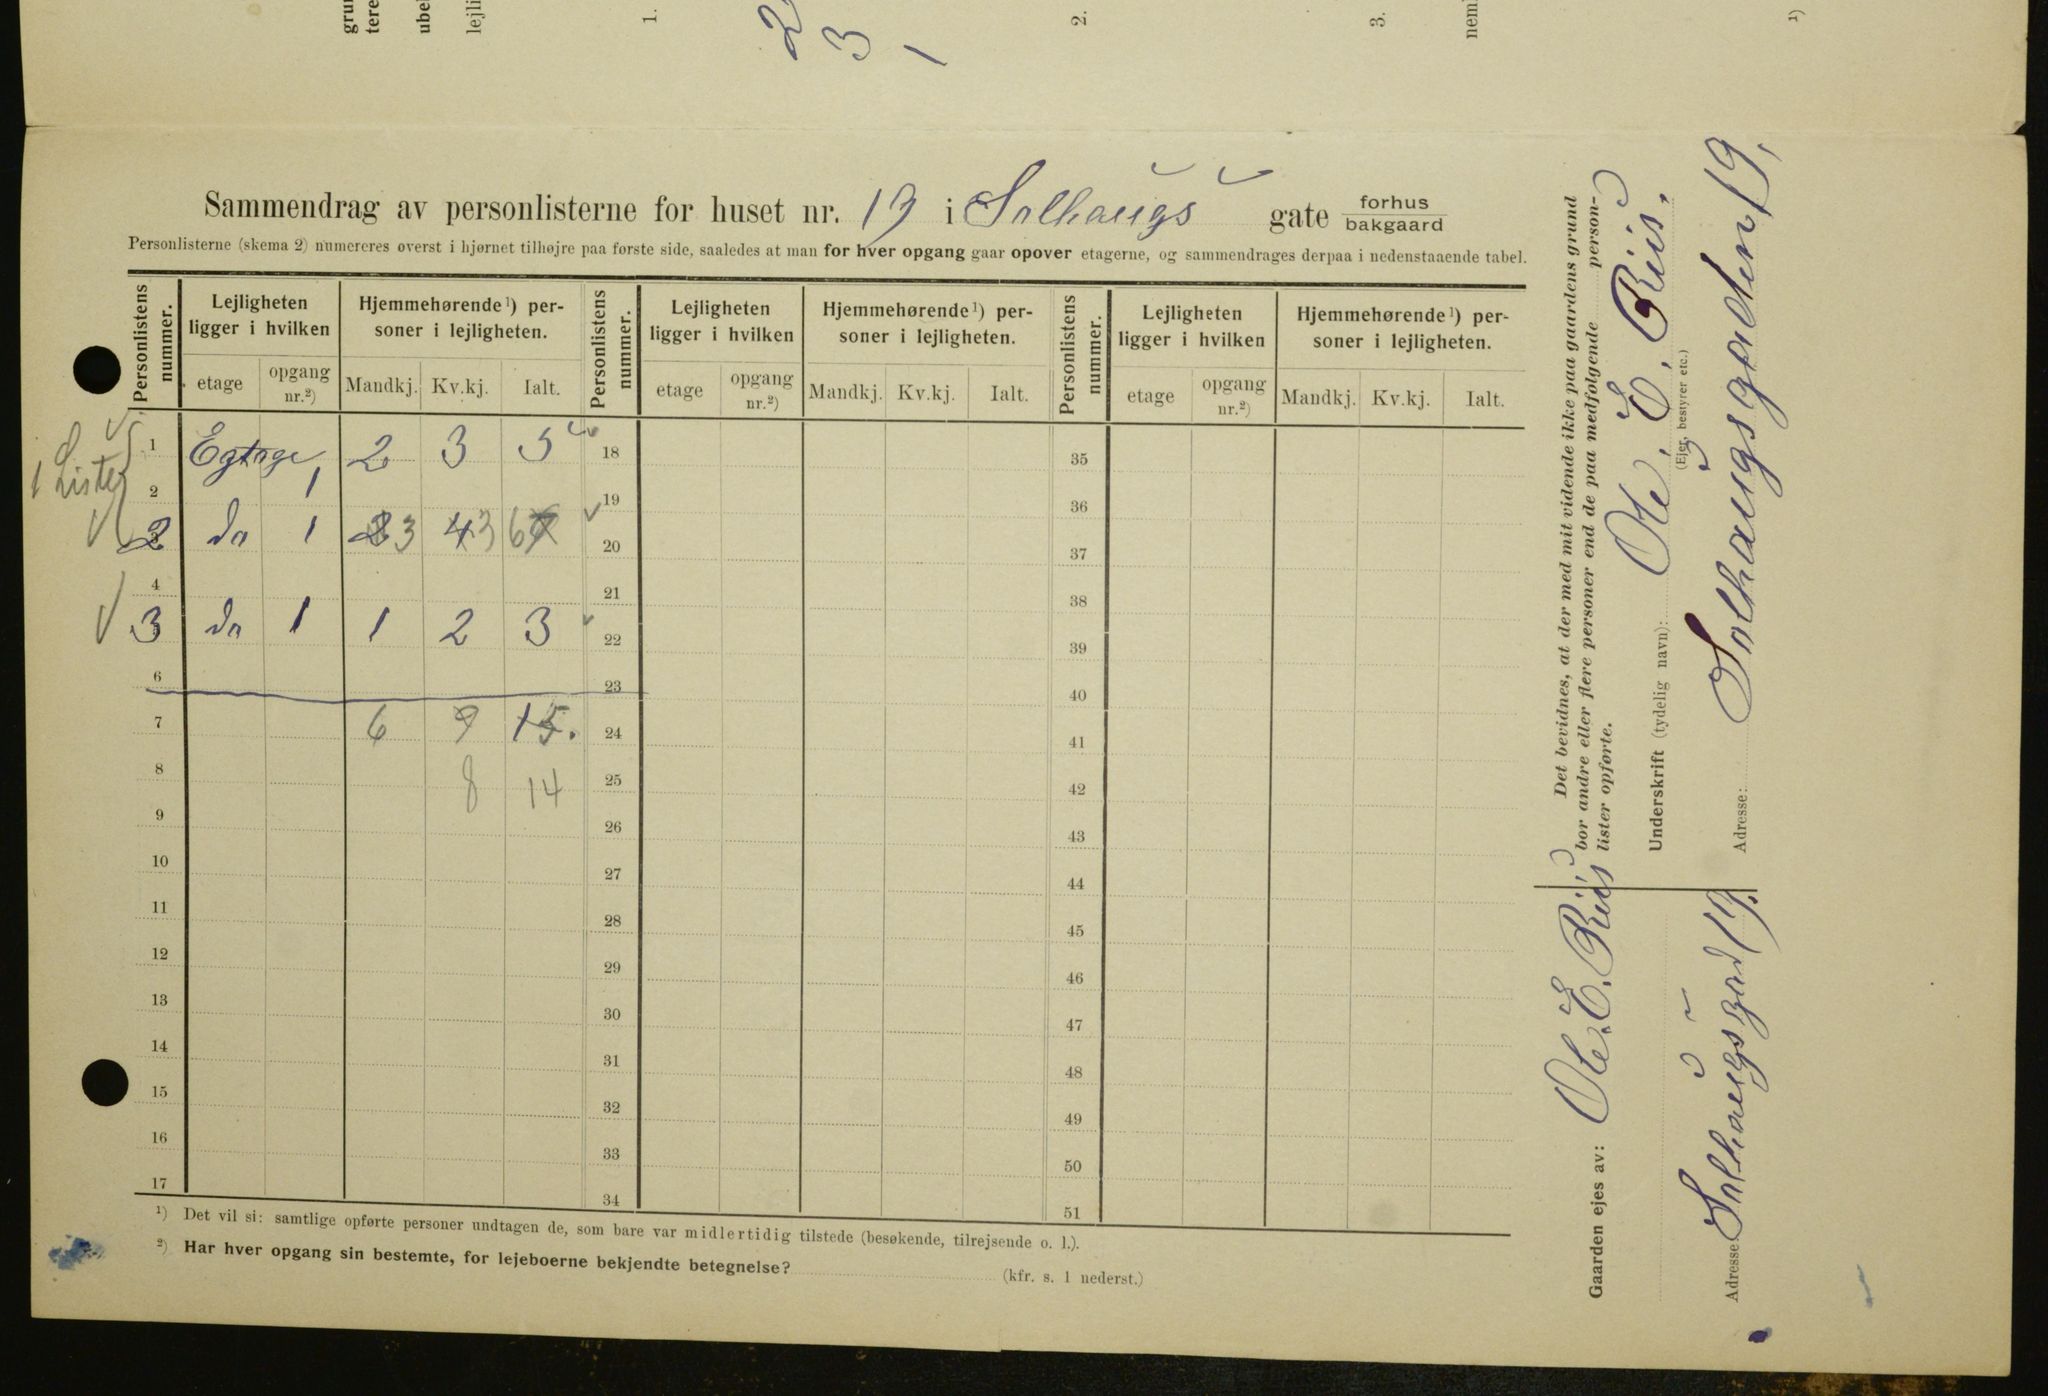 1.
2.
3.
1)
2
3
1
Sammendrag av personlisterne for huset nr. 19 i Solhaugs gate forhus bakgaard
Personlisterne (skema 2) numereres øverst i hjørnet tilhøjre paa første side, saaledes at man for hver opgang gaar opover etagerne, og sammendrages derpaa i nedenstaaende tabel.
Personlistens nummer. Lejligheten ligger i hvilken Hjemmehørende¹) personer i lejligheten. Personlistens nummer. Lejligheten ligger i hvilken Hjemmehørende¹) personer i lejligheten. Personlistens nummer. Lejligheten ligger i hvilken Hjemmehørende¹) personer i lejligheten.
etage opgang nr.²) Mandkj. Kv.kj. Ialt. etage opgang nr.²) Mandkj. Kv.kj. Ialt. etage opgang nr.²) Mandkj. Kv.kj. Ialt.
1 Lister
1 1 2 3 5 18 35
2 19 36
2 3 do 1 2 3 4 3 6 7 20 37
4 21 38
3 do 1 1 2 3 22 39
6 23 40
7 6 9 15. 24 41
8 8 14 25 42
9 26 43
10 27 44
11 28 45
12 29 46
13 30 47
14 31 48
15 32 49
16 33 50
17 34 51
¹) Det vil si: samtlige opførte personer undtagen de, som bare var midlertidig tilstede (besøkende, tilrejsende o. l.).
²) Har hver opgang sin bestemte, for lejeboerne bekjendte betegnelse? (kfr. s. 1 nederst.)
Det bevidnes, at der med mit vidende ikke paa gaardens grund
bor andre eller flere personer end de paa medfølgende person-
lister opførte.
Underskrift (tydelig navn): Ole. E. Riis.
(Ejer, bestyrer etc.)
Adresse: Solhaugsgaden 19,
Gaarden ejes av: Ole. E. Riis
Adresse: Solhaugsgad 19.